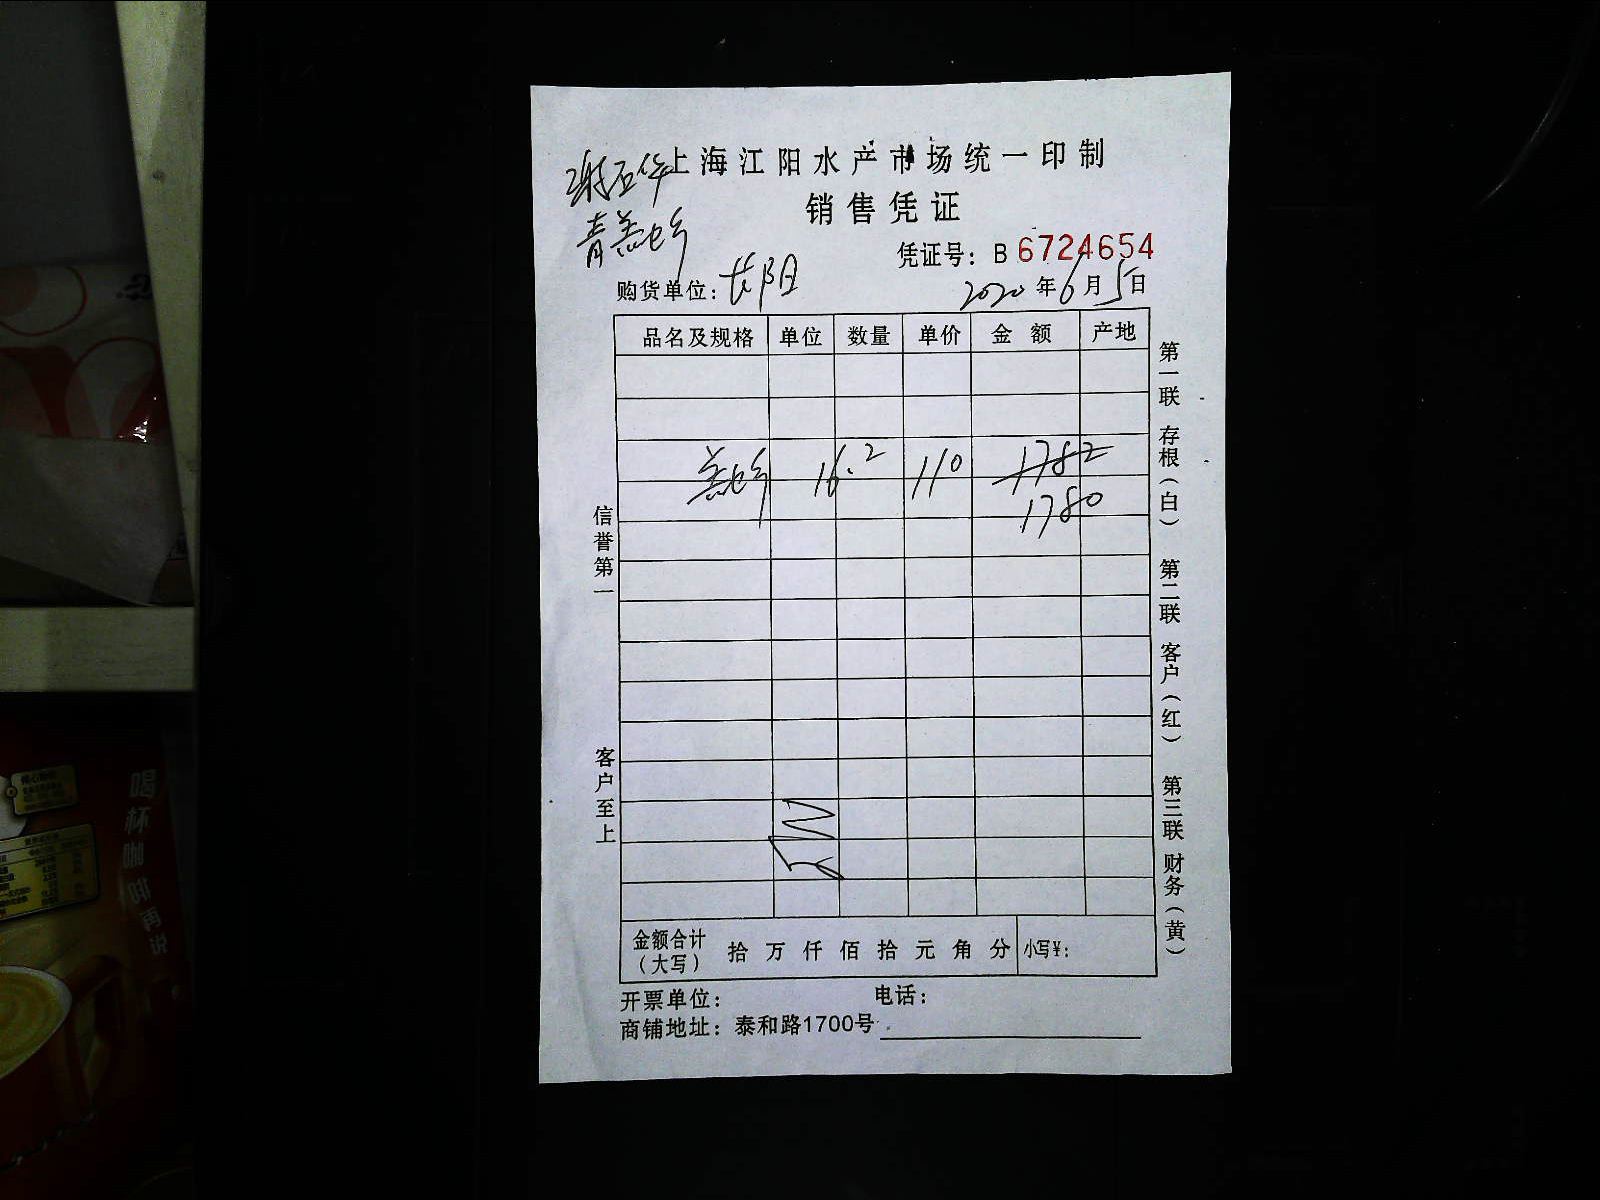 上海江阳水产市场统一印制
销售凭证
凭证号：B 6724654
购货单位：长阳
2020年6月5日
品名及规格 单位 数量 单价 金额 产地
16.2 110 1782
1780
信誉第一
客户至上
第一联 存根（白） 第二联 客户（红） 第三联 财务（黄）
金额合计（大写） 拾 万 仟 佰 拾 元 角 分 小写¥：
开票单位： 电话：
商铺地址：泰和路1700号
喝杯咖啡再说